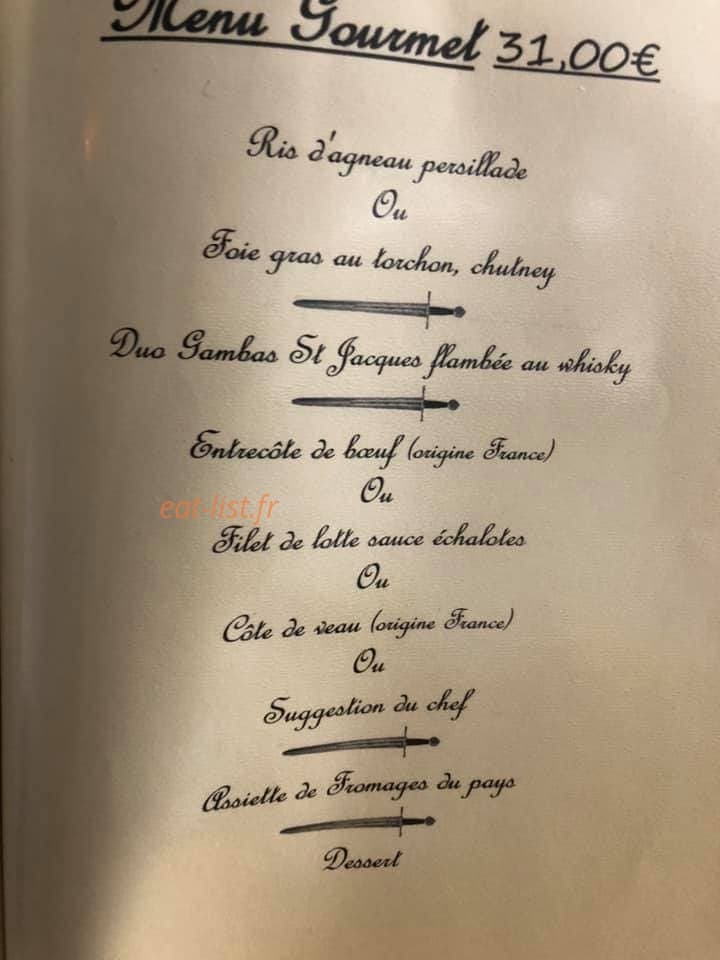 Menu Gourmet 31,00€
Ris d'agneau persillade
Ou
Foie gras au torchon, chutney
Duo Gambas St Jacques flambée au whisky
Entrecôte de bœuf (origine France)
Ou
eat-list.fr
Filet de lotte sauce échalotes
Ou
Côte de veau (origine France)
Ou
Suggestion du chef
Assiette de Fromages du pays
Dessert